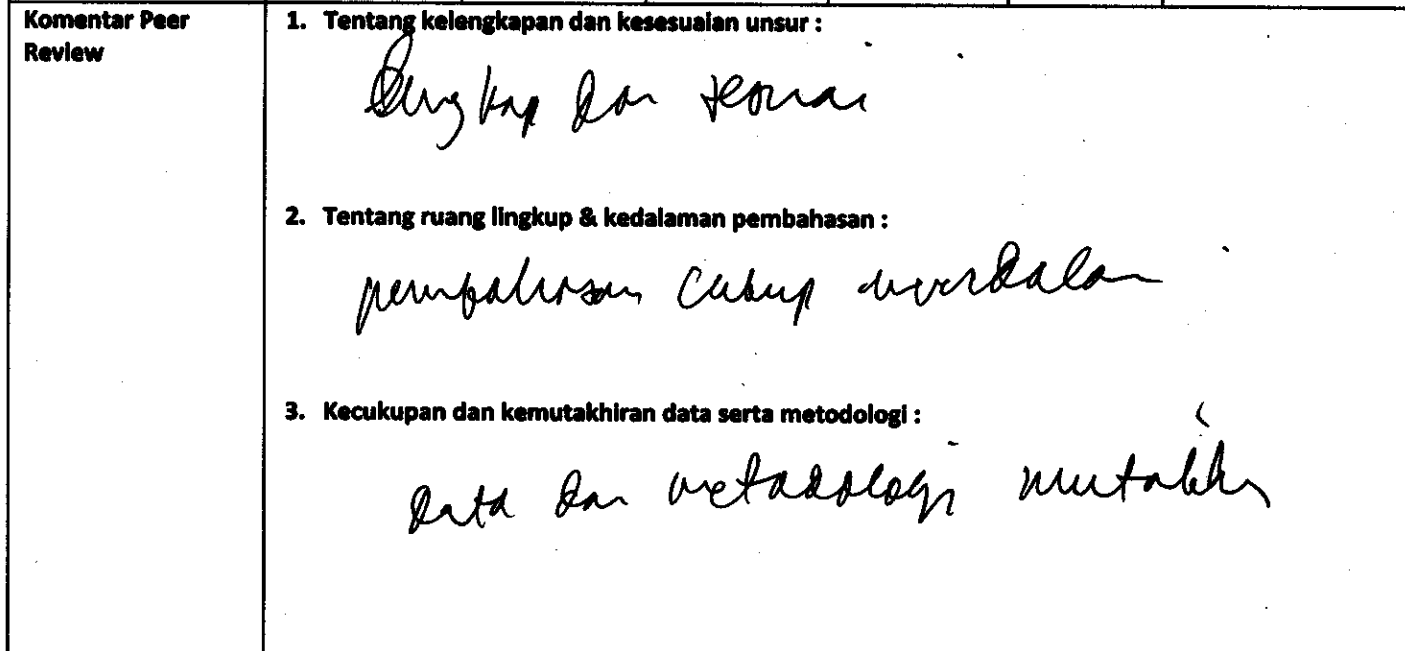 Komentar Peer
Review
1. Tentang kelengkapan dan kesesuaian unsur :
Lengkap dan sesuai
2. Tentang ruang lingkup & kedalaman pembahasan :
pembahasan cukup mendalam
3. Kecukupan dan kemutakhiran data serta metodologi :
Data dan metodologi mutakhir